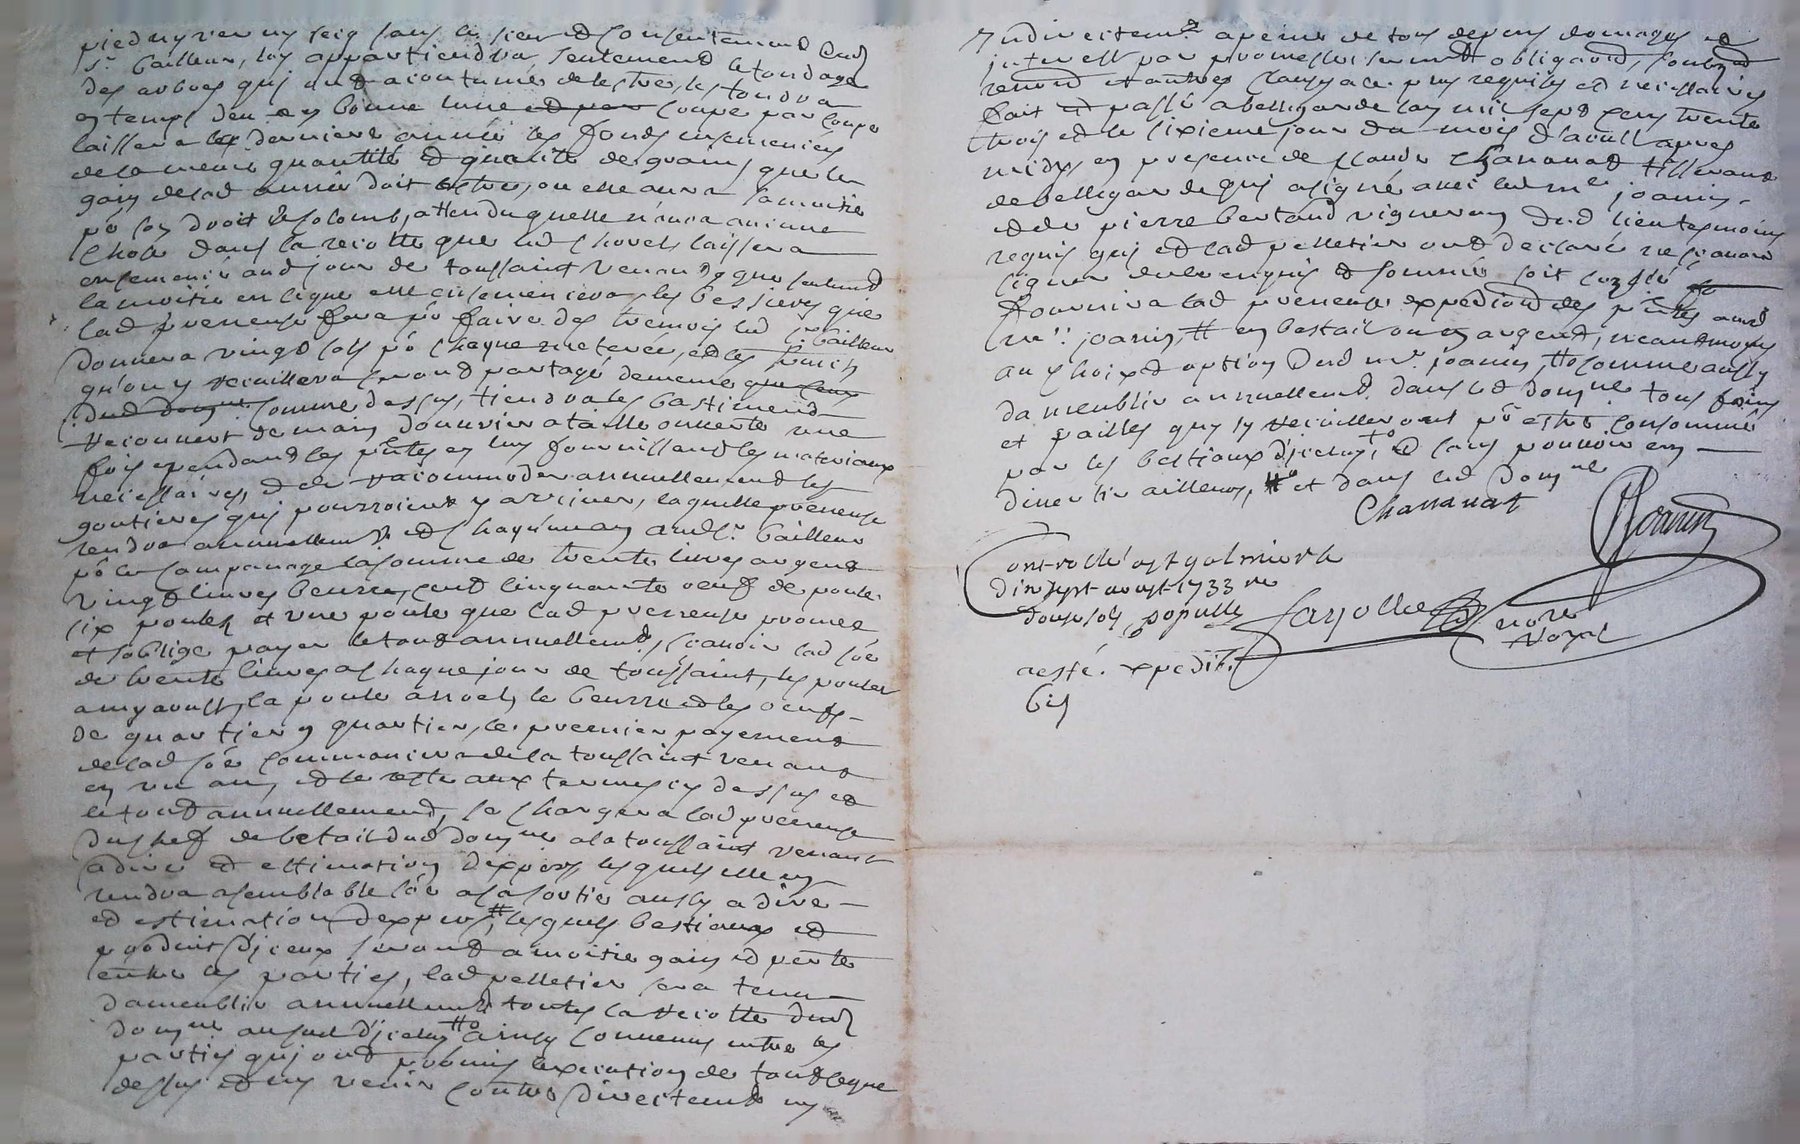 pied ny rien ny seig sans le sieur et consentement dud
sr bailleur, luy appartiendra seulement letondage
des arbres quj ont acoutumé de lestre, les tondra
en temps deu en bonne lune et par coupe par coupe
laissera la derniere année les fonds ensemencés
de la meme quantité et qualité de grains que le
gain de lad année doit estre, ou elle aura la moitié
po son droit de colomb, attendu quelle n'aura aucune
chose dans la recolte que led chovet laissera
ensemencé aud jour de toussaint venant que seulemt
la moitié en ligne elle ensemencera les bessieres que
lad preneuse fera po faire des tremois led sr bailleur
donnera vingt sols po chaque meterée, et les fruits
qu'on y recuillera seront partagé de meme que ceux
dud domne comme dessus, tiendra les bastiments
recouvert de main d'ouvrier a taille ouverte une
fois pendant les pntes en luy fournissant les materiaux
necessaires, et de racommoder annuellement les
goutieres quj pourroient y arriver, laquelle preneuse
rendra annuellemt et chaqu'un an aud sr bailleur
po le sampanage la somme de trente livres argent
vingt livres beurre, cent cinquante oeuf de poule
six poulet et une poule que lad preneuse promet
et soblige payer le tout annuellemt, scavoir lad soe
de trente livres a chaque jour de toussaint, les poulet
a my aoust, la poule a noel, le beurre et les oeufs
de quartier en quartier, le premier payement
de lad soe commencera de la toussaint venant
en un an, et le reste aux termes cy dessus et
le tout annuellement, se chargera lad preneuse
du chef de betail dud domne a la toussaint venant
a dire et estimation d'expers lesquels elle en
rendra a semblable soe a sa sortie aussy a dire
et estimation d'expers, # lesquels bestiaux et
produits d'jceux seront a moitié gain et perte
entre les parties, lad pelletier sera tenu
dameublir annuellemt toutes la recolte dud
domne au sud d'jceluy # ainsy convenu entre les
parties quj ont promis l'execution de tout ceque
dessus et ny venir contre directemt ny
Indirectemt a peine de tous depens domages et
interest par promesse serment obligaõns, soubmõn
renonõn et autres clauses a ce plus requises et necessaires
fait et passé a bellegarde lan mil sept cens trente
trois et le sixieme jour du mois d'aoust apres
midy en presence de claude chananat tisserand
de bellegarde quj a signé avec led mre joanin
et de pierre bertand vigneron dud lieu tesmoins
requis quj et lad pelletier ont declaré ne scavoir
signer de ce enquis et sommés soit controllé
fournira lad preneuse expedition des pntes aud
mre joanin, # en bestail ou en argent, neantmoins
au choix et option dud mre joanin, # comme aussy
dameublir annuellemt dans led domne tous foins
et pailles quy sy recuilleront po estre consommé
par les bestiaux d'jceluy, et sans pouvoir en
divertir ailleurs, # et dans led domne
Chananat
Joanin
Controllé a st galmier le
dix sept aoust 1733 re
douze sols
notre
Royal
resté. expedié.